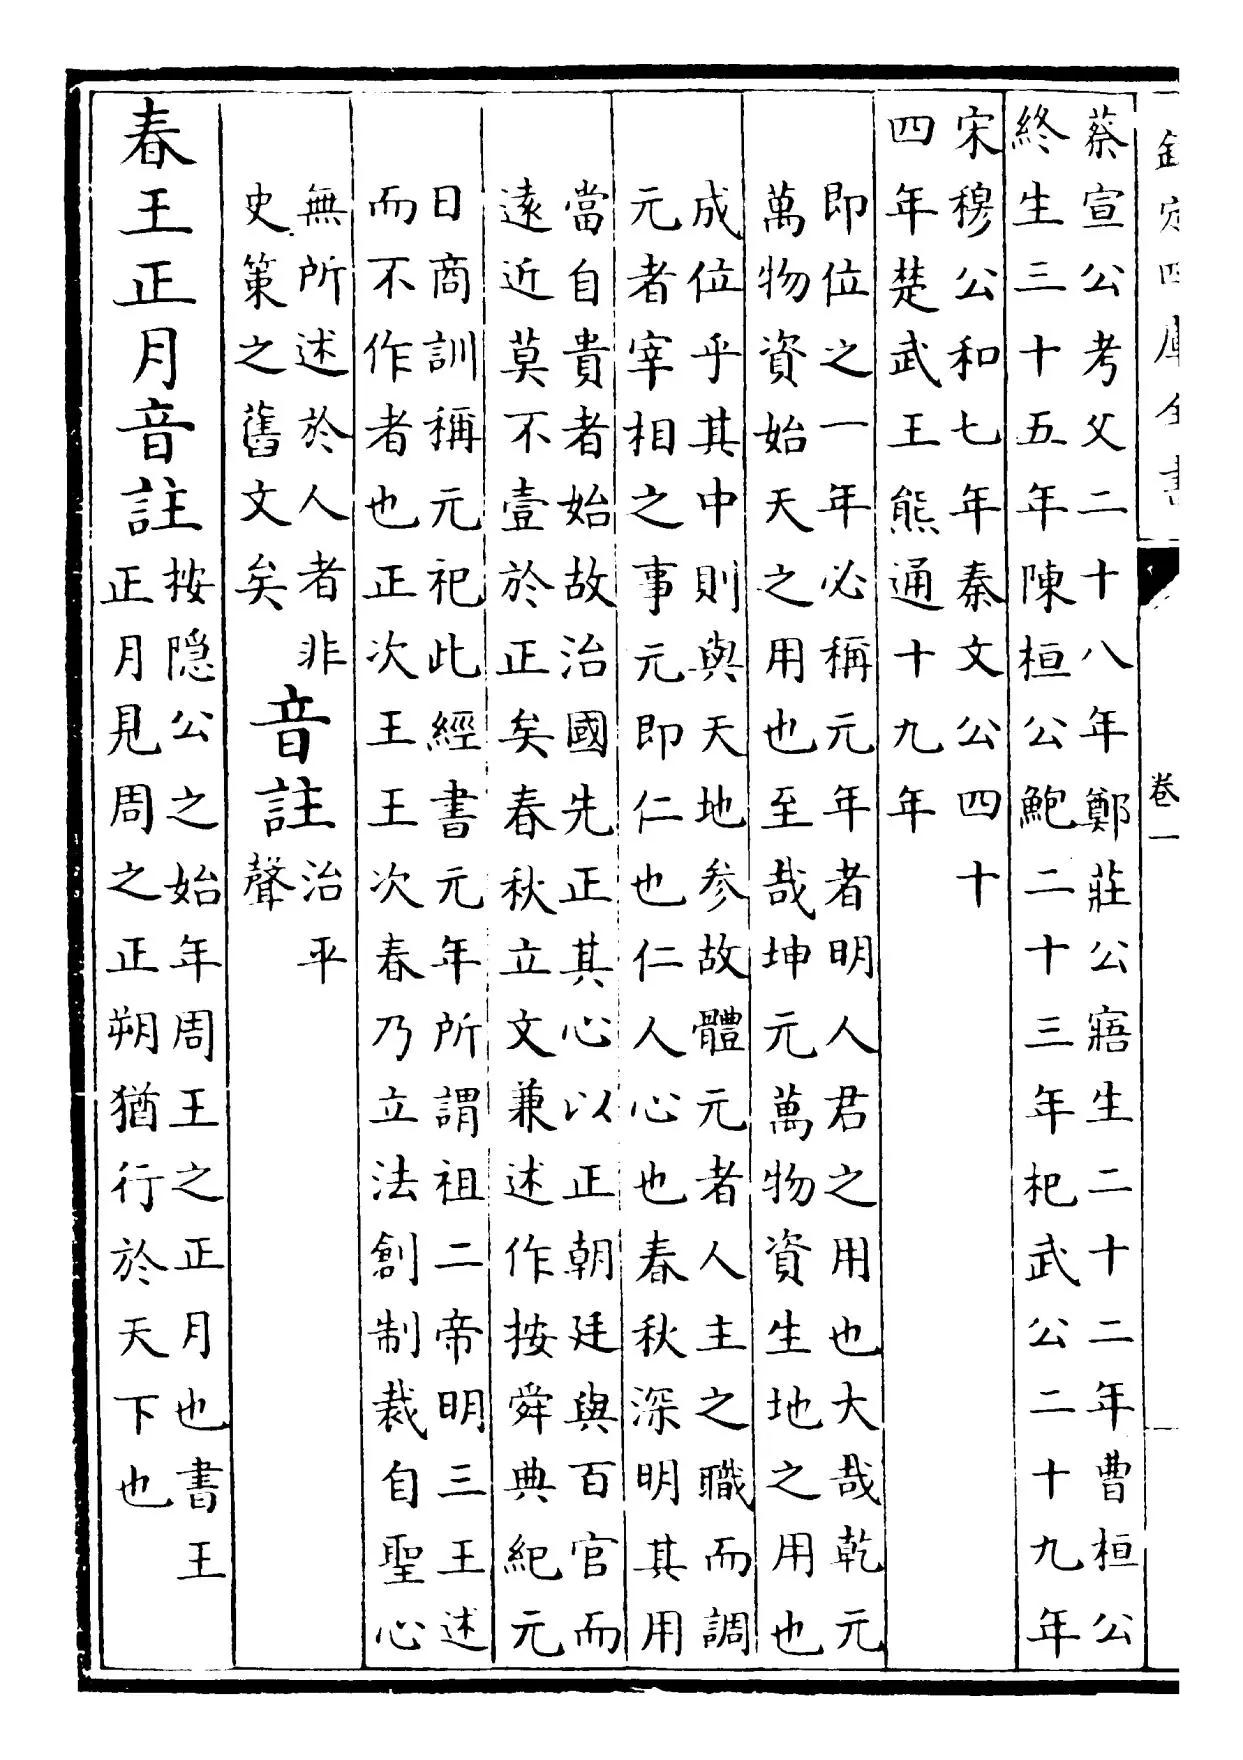 欽定四庫全書
卷一
蔡宣公考父二十八年鄭莊公寤生二十二年曹桓公
終生三十五年陳桓公鮑二十三年杞武公二十九年
宋穆公和七年秦文公四十
四年楚武王熊通十九年
即位之一年必稱元年者明人君之用也大哉乾元
萬物資始天之用也至哉坤元萬物資生地之用也
成位乎其中則與天地参故體元者人主之職而調
元者宰相之事元即仁也仁人心也春秋深明其用
當自貴者始故治國先正其心以正朝廷與百官而
遠近莫不壹於正矣春秋立文兼述作按舜典紀元
日商訓稱元祀此經書元年所謂祖二帝明三王述
而不作者也正次王王次春乃立法創制裁自聖心
無所述於人者非
史策之舊文矣
音註
治平
聲
春王正月音註
按隠公之始年周王之正月也書王
正月見周之正朔猶行於天下也